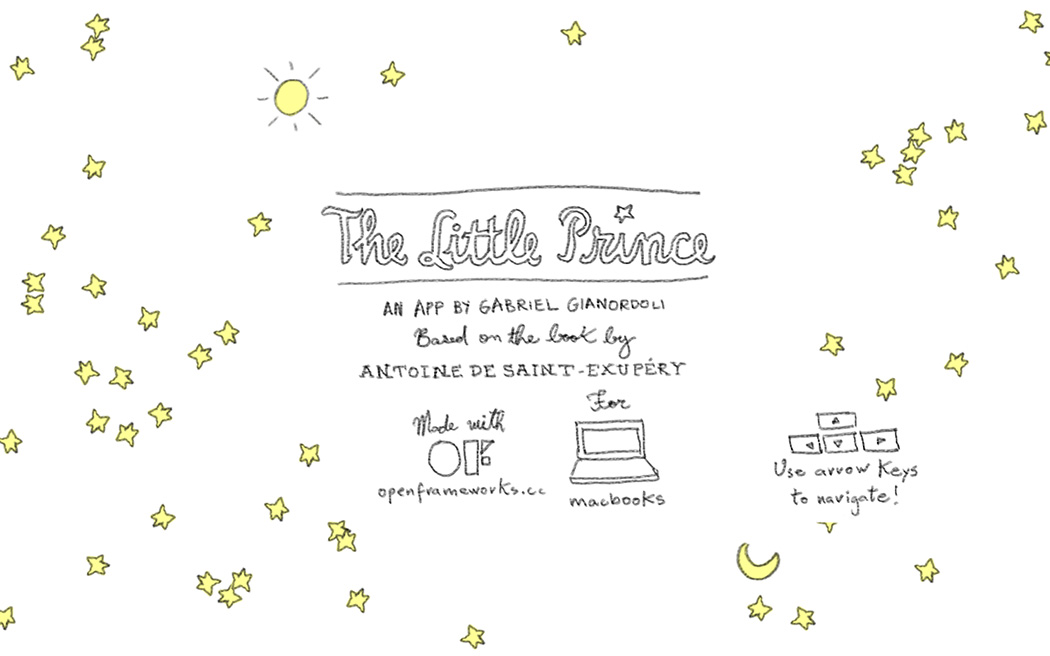 The Little Prince
AN APP BY GABRIEL GIANORDOLI
Based on the book by
ANTOINE DE SAINT-EXUPÉRY
For
Made with
OF
openframeworks.cc
macbooks
Use arrow Keys
to navigate!